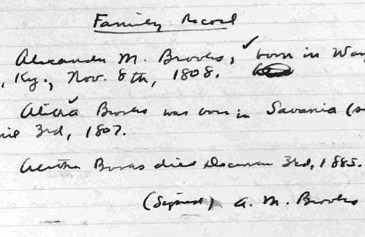 Family Record
Alexander M. Brooks, born in
Ky., Nov. 8th, 1808.
Brooks was born in Savania
3rd, 1807.
Brooks died December 3rd, 1885.
(Signed) A. M. Brooks